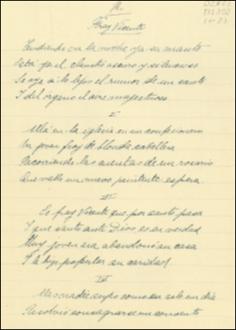 Fray Vicente
Tendiendo va la noche ya su manto
Está ya el claustro oscuro y silencioso
Se oye a lo lejos el rumor de un canto
I del órgano el aire majestuoso
I
Allá en la iglesia en un confesionario
Un joven fray de blonda cabellera
Recorriendo las cuentas de un rosario
que un nuevo penitente espera.
II
Es fray Vicente que por santo pasa
I que santo ante Dios es en verdad
Muy joven era abandonó su casa
I a la hija en caridad
IV
Mas nadie supo como en solo un día
Resolvió consagrarse en un convento